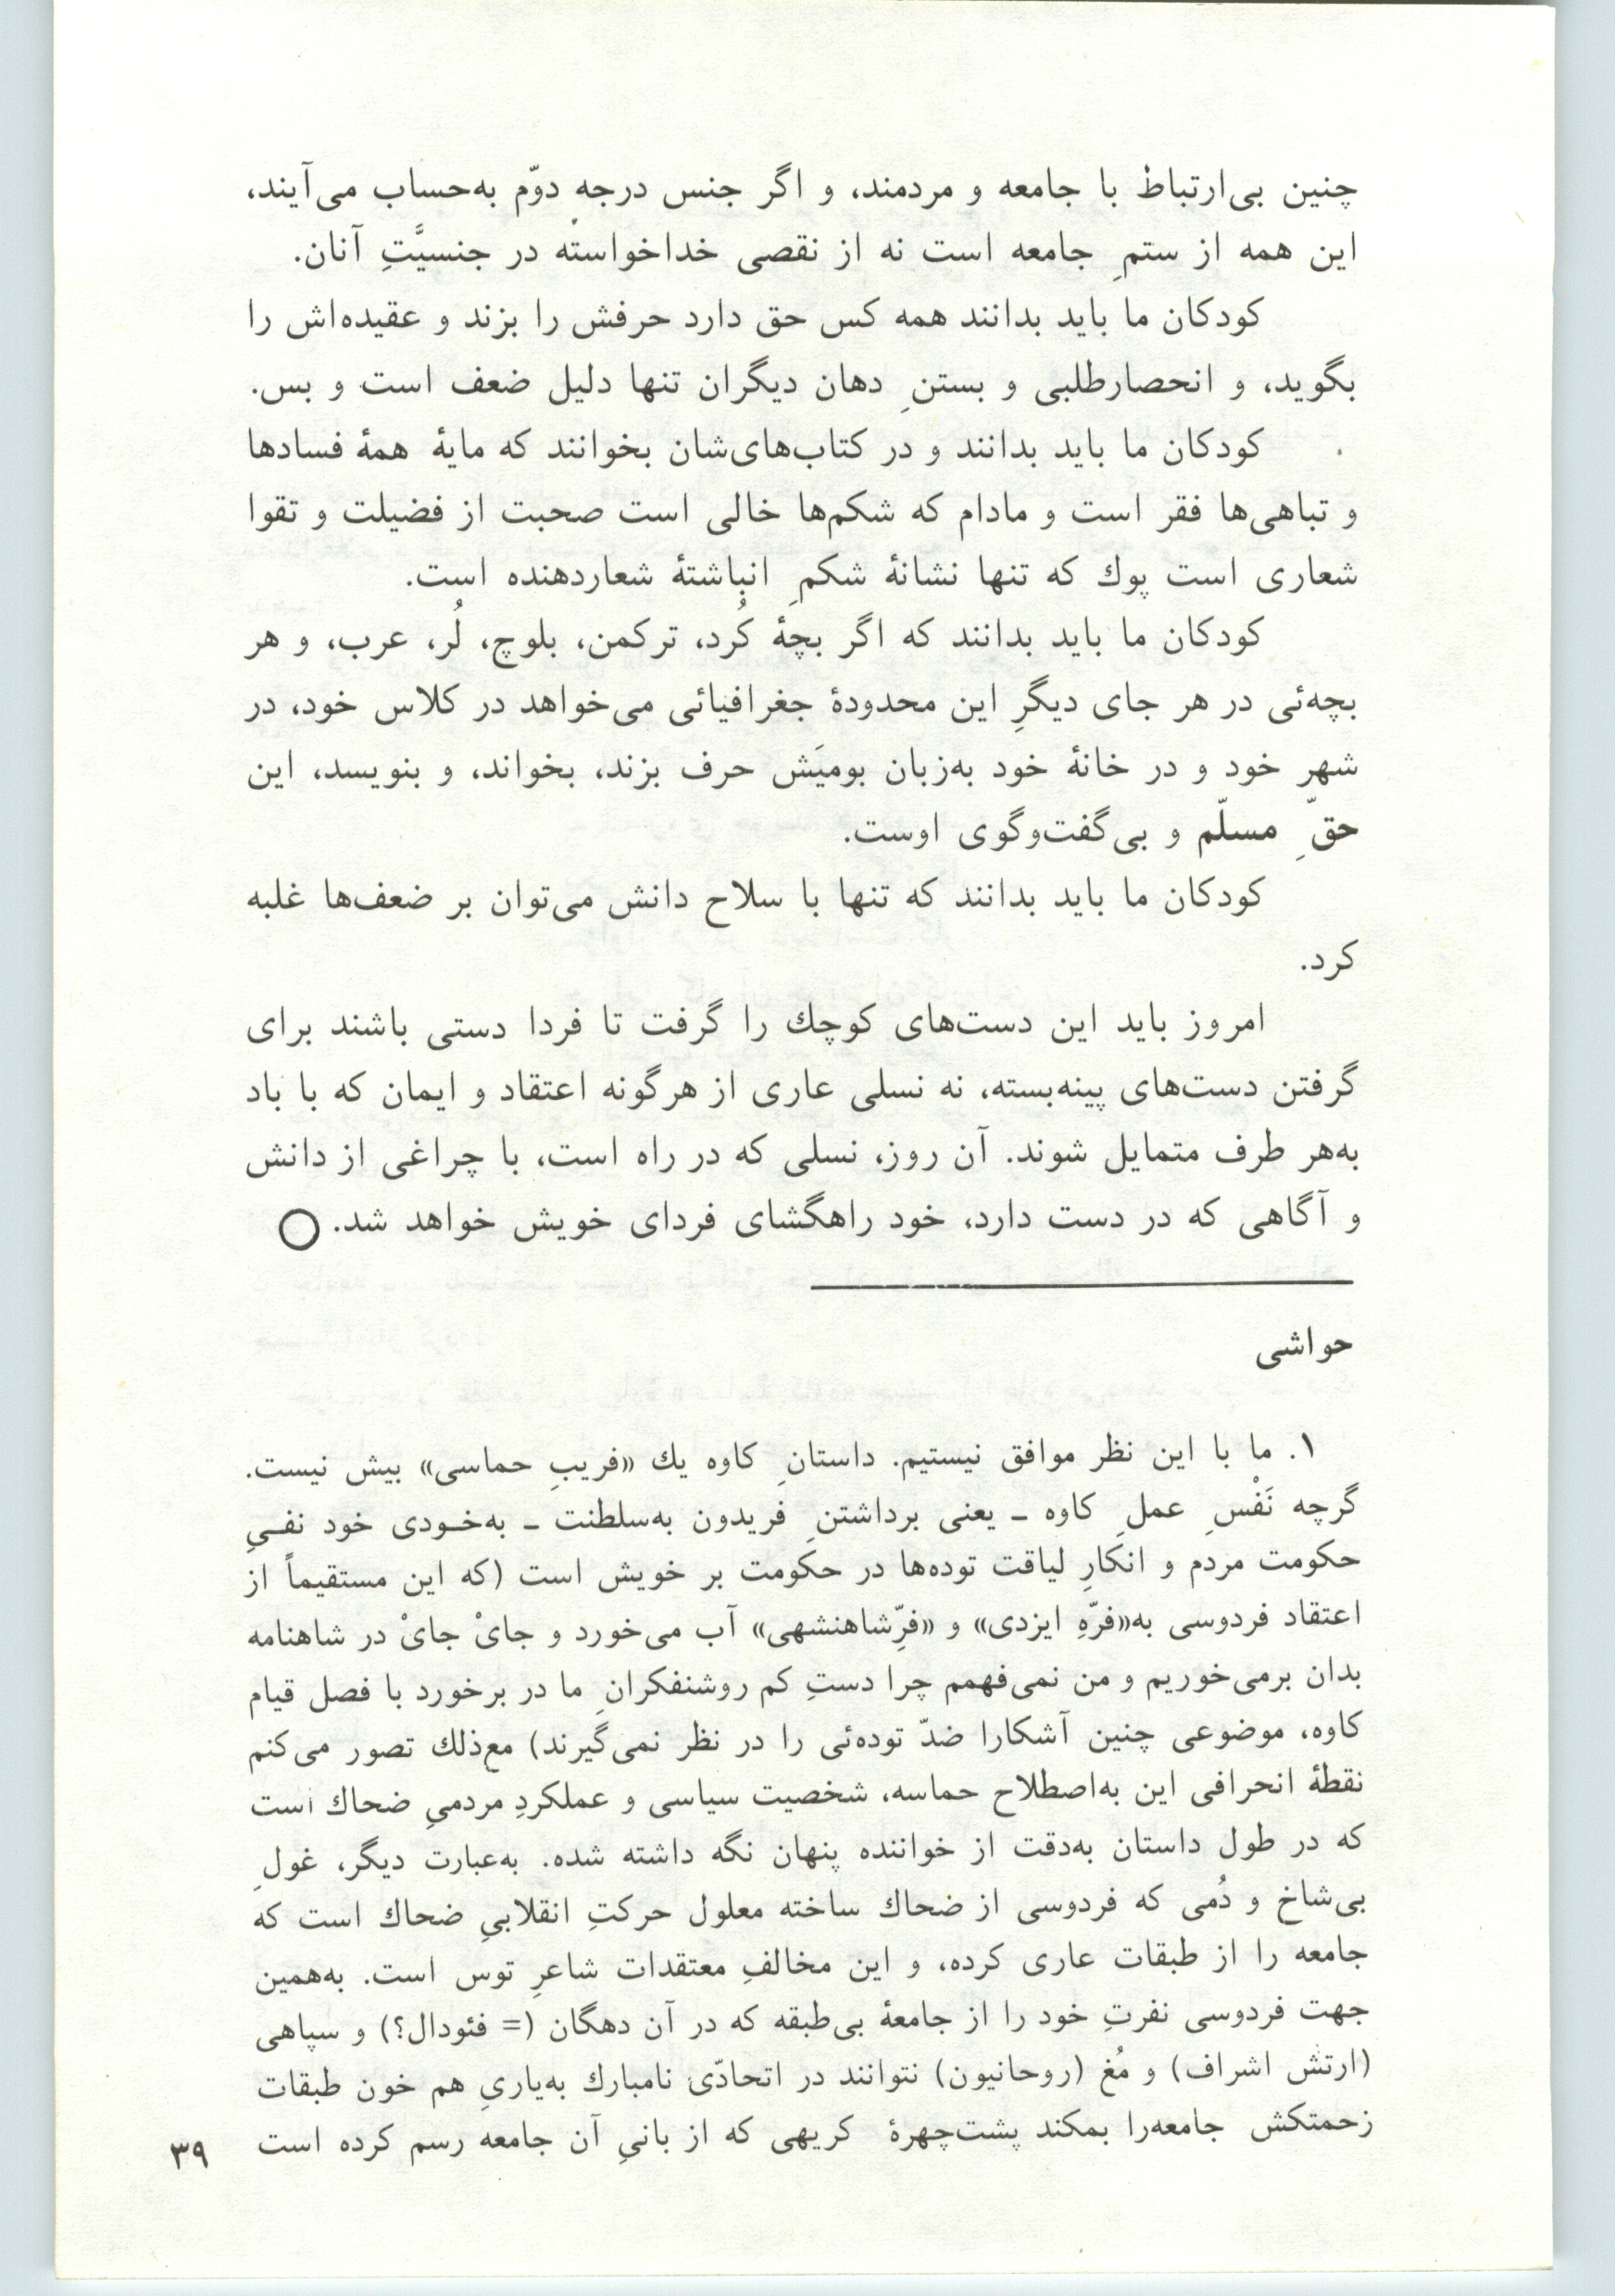 چنین بی‌ارتباط با جامعه و مردمند، و اگر جنس درجه دوّم به‌حساب می‌آیند،
این همه از ستمِ جامعه است نه از نقصی خداخواسته در جنسیَّتِ آنان.
کودکان ما باید بدانند همه کس حق دارد حرفش را بزند و عقیده‌اش را
بگوید، و انحصارطلبی و بستنِ دهان دیگران تنها دلیل ضعف است و بس.
کودکان ما باید بدانند و در کتاب‌های‌شان بخوانند که مایهٔ همهٔ فسادها
و تباهی‌ها فقر است و مادام که شکم‌ها خالی است صحبت از فضیلت و تقوا
شعاری است پوك که تنها نشانهٔ شکمِ انباشتهٔ شعاردهنده است.
کودکان ما باید بدانند که اگر بچهٔ کُرد، ترکمن، بلوچ، لُر، عرب، و هر
بچه‌ئی در هر جای دیگرِ این محدودهٔ جغرافیائی می‌خواهد در کلاس خود، در
شهر خود و در خانهٔ خود به‌زبان بومیَش حرف بزند، بخواند، و بنویسد، این
حقّ‌ِ مسلّم و بی‌گفت‌وگوی اوست.
کودکان ما باید بدانند که تنها با سلاح دانش می‌توان بر ضعف‌ها غلبه
کرد.
امروز باید این دست‌های کوچك را گرفت تا فردا دستی باشند برای
گرفتن دست‌های پینه‌بسته، نه نسلی عاری از هرگونه اعتقاد و ایمان که با باد
به‌هر طرف متمایل شوند. آن روز، نسلی که در راه است، با چراغی از دانش
و آگاهی که در دست دارد، خود راهگشای فردای خویش خواهد شد. ◯
حواشی
۱. ما با این نظر موافق نیستیم. داستانِ کاوه یك «فریبِ حماسی» بیش نیست.
گرچه نَفْسِ عملِ کاوه ـ یعنی برداشتنِ فریدون به‌سلطنت ـ به‌خـودی خود نفـیِ
حکومت مردم و انکارِ لیاقت توده‌ها در حکومت بر خویش است (که این مستقیماً از
اعتقاد فردوسی به«فرّهِ ایزدی» و «فرِّشاهنشهی» آب می‌خورد و جایْ جایْ در شاهنامه
بدان برمی‌خوریم و من نمی‌فهمم چرا دستِ کم روشنفکرانِ ما در برخورد با فصل قیام
کاوه، موضوعی چنین آشکارا ضدّ توده‌ئی را در نظر نمی‌گیرند) مع‌ذلك تصور می‌کنم
نقطهٔ انحرافی این به‌اصطلاح حماسه، شخصیت سیاسی و عملکردِ مردمیِ ضحاك است
که در طول داستان به‌دقت از خواننده پنهان نگه داشته شده. به‌عبارت دیگر، غولِ
بی‌شاخ و دُمی که فردوسی از ضحاك ساخته معلول حرکتِ انقلابیِ ضحاك است که
جامعه را از طبقات عاری کرده، و این مخالفِ معتقدات شاعرِ توس است. به‌همین
جهت فردوسی نفرتِ خود را از جامعهٔ بی‌طبقه که در آن دهگان (= فئودال؟) و سپاهی
(ارتش اشراف) و مُغ (روحانیون) نتوانند در اتحادّی نامبارك به‌یاریِ هم خون طبقات
زحمتکش جامعه‌را بمکند پشت‌چهرهٔ کریهی که از بانیِ آن جامعه رسم کرده است
۳۹